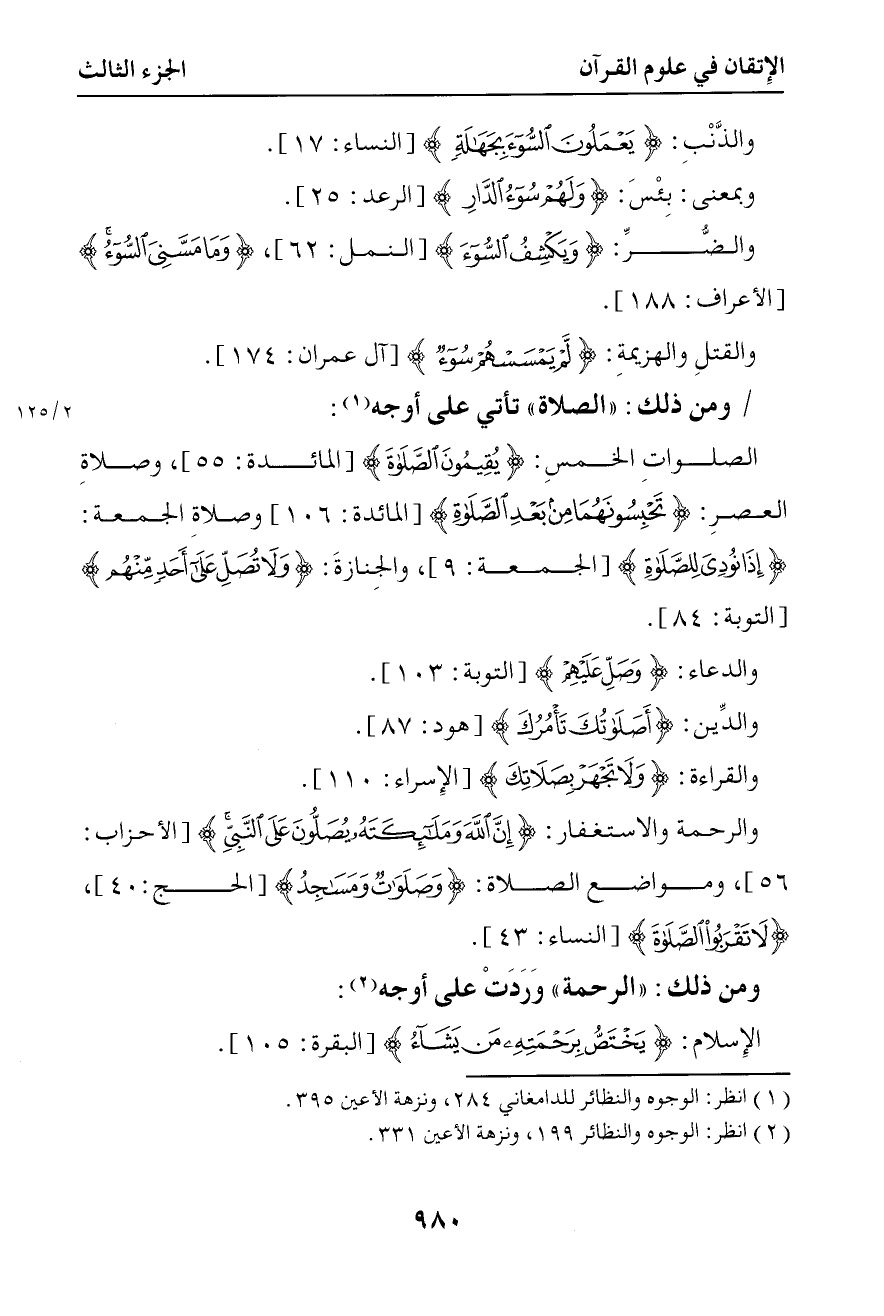 الإتقان في علوم القرآن الجزء الثالث
والذَّنْبِ: ﴿يَعْمَلُونَ ٱلسُّوٓءَ بِجَهَٰلَةٍ﴾ [النساء: ١٧].
وبمعنى: بِئْسَ: ﴿وَلَهُمْ سُوٓءُ ٱلدَّارِ﴾ [الرعد: ٢٥].
والضُّرِّ: ﴿وَيَكْشِفُ ٱلسُّوٓءَ﴾ [النمل: ٦٢]، ﴿وَمَا مَسَّنِىَ ٱلسُّوٓءُ ۚ﴾
[الأعراف: ١٨٨].
والقتلِ والهزيمةِ: ﴿لَّمْ يَمْسَسْهُمْ سُوٓءٌ﴾ [آل عمران: ١٧٤].
/ ومن ذلك: «الصلاة» تأتي على أوجه(١): ١٢٥/٢
الصلواتِ الخمسِ: ﴿يُقِيمُونَ ٱلصَّلَوٰةَ﴾ [المائدة: ٥٥]، وصلاةِ
العصرِ: ﴿تَحْبِسُونَهُمَا مِنۢ بَعْدِ ٱلصَّلَوٰةِ﴾ [المائدة: ١٠٦] وصلاةِ الجمعة:
﴿إِذَا نُودِىَ لِلصَّلَوٰةِ﴾ [الجمعة: ٩]، والجِنازةَ: ﴿وَلَا تُصَلِّ عَلَىٰٓ أَحَدٍ مِّنْهُم﴾
[التوبة: ٨٤].
والدعاء: ﴿وَصَلِّ عَلَيْهِمْ﴾ [التوبة: ١٠٣].
والدِّين: ﴿أَصَلَوٰتُكَ تَأْمُرُكَ﴾ [هود: ٨٧].
والقراءة: ﴿وَلَا تَجْهَرْ بِصَلَاتِكَ﴾ [الإسراء: ١١٠].
والرحمة والاستغفار: ﴿إِنَّ ٱللَّهَ وَمَلَٰٓئِكَتَهُۥ يُصَلُّونَ عَلَى ٱلنَّبِيِّ ۚ﴾ [الأحزاب:
٥٦]، ومواضع الصلاة: ﴿وَصَلَوَٰتٌ وَمَسَٰجِدُ﴾ [الحج: ٤٠]،
﴿لَا تَقْرَبُوا۟ ٱلصَّلَوٰةَ﴾ [النساء: ٤٣].
ومن ذلك: «الرحمة» وَرَدَتْ على أوجه(٢):
الإسلام: ﴿يَخْتَصُّ بِرَحْمَتِهِۦ مَن يَشَآءُ﴾ [البقرة: ١٠٥].
(١) انظر: الوجوه والنظائر للدامغاني ٢٨٤، ونزهة الأعين ٣٩٥.
(٢) انظر: الوجوه والنظائر ١٩٩، ونزهة الأعين ٣٣١.
٩٨٠